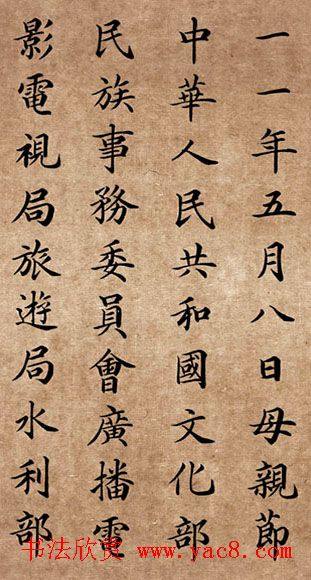 一一年五月八日母親節
中華人民共和國文化部
民族事務委員會廣播電
影電視局旅遊局水利部
书法欣赏 www.yac8.com